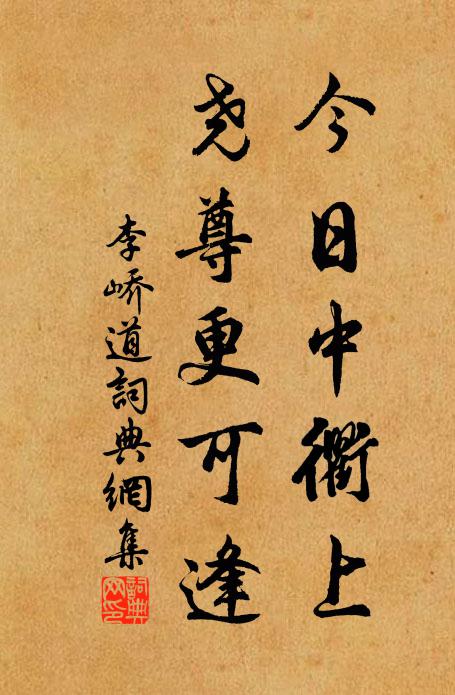 今日中衢上
尧尊更可逢
李峤道詞典網集
詞典
网印